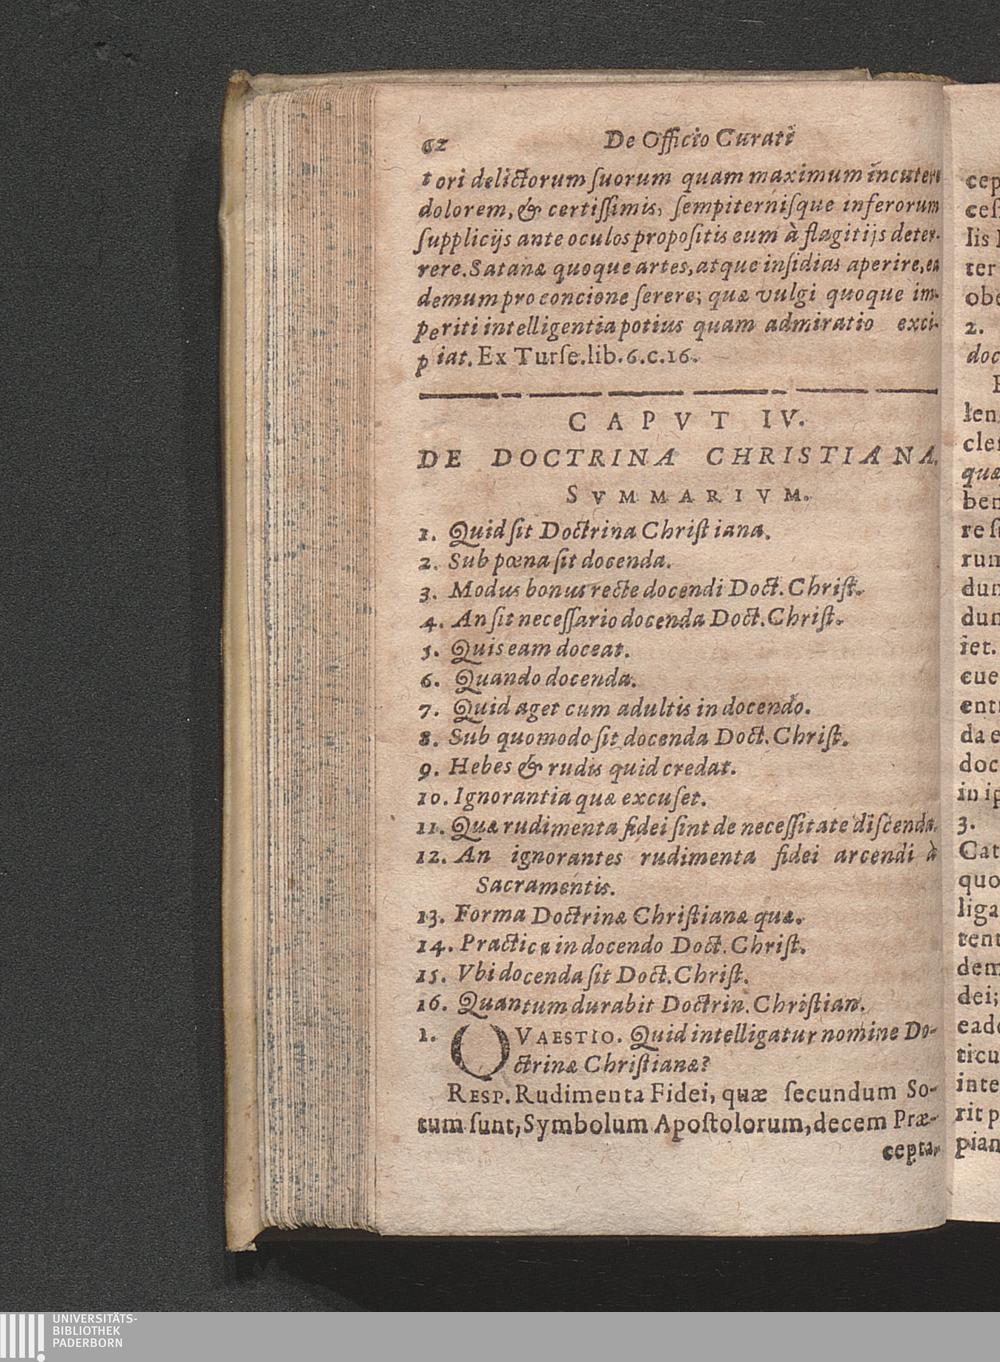 62 De Officio Curati
tori delictorum suorum quam maximum incutere
dolorem, & certissimis, sempiternisque inferorum
supplicijs ante oculos propositis eum à flagitijs deter-
rere. Satanæ quoque artes, atque insidias aperire, ea
demum pro concione serere; quæ vulgi quoque im-
periti intelligentia potius quam admiratio exci-
piat. Ex Turse. lib. 6. c. 16.
CAPVT IV.
DE DOCTRINA CHRISTIANA.
SVMMARIVM.
1. Quid sit Doctrina Christiana.
2. Sub pœna sit docenda.
3. Modus bonus recte docendi Doct. Christ.
4. An sit necessario docenda Doct. Christ.
5. Quis eam doceat.
6. Quando docenda.
7. Quid aget cum adultis in docendo.
8. Sub quomodo sit docenda Doct. Christ.
9. Hebes & rudis quid credat.
10. Ignorantia quæ excuset.
11. Quæ rudimenta fidei sint de necessitate discenda.
12. An ignorantes rudimenta fidei arcendi à
Sacramentis.
13. Forma Doctrinæ Christianæ quæ.
14. Practicæ in docendo Doct. Christ.
15. Vbi docenda sit Doct. Christ.
16. Quantum durabit Doctrin. Christian.
1. QVAESTIO. Quid intelligatur nomine Do-
ctrinæ Christianæ?
RESP. Rudimenta Fidei, quæ secundum So-
tum sunt, Symbolum Apostolorum, decem Præ-
cepta,
cep
ces
lis
ter
obe
2.
doc
len
cle
quæ
ben
re s
rum
dun
dun
iet.
cue
ent
da e
doc
in ip
3.
Cat
quo
liga
tent
dem
dei;
eade
ticu
inte
rit p
pian
UNIVERSITÄTS-
BIBLIOTHEK
PADERBORN